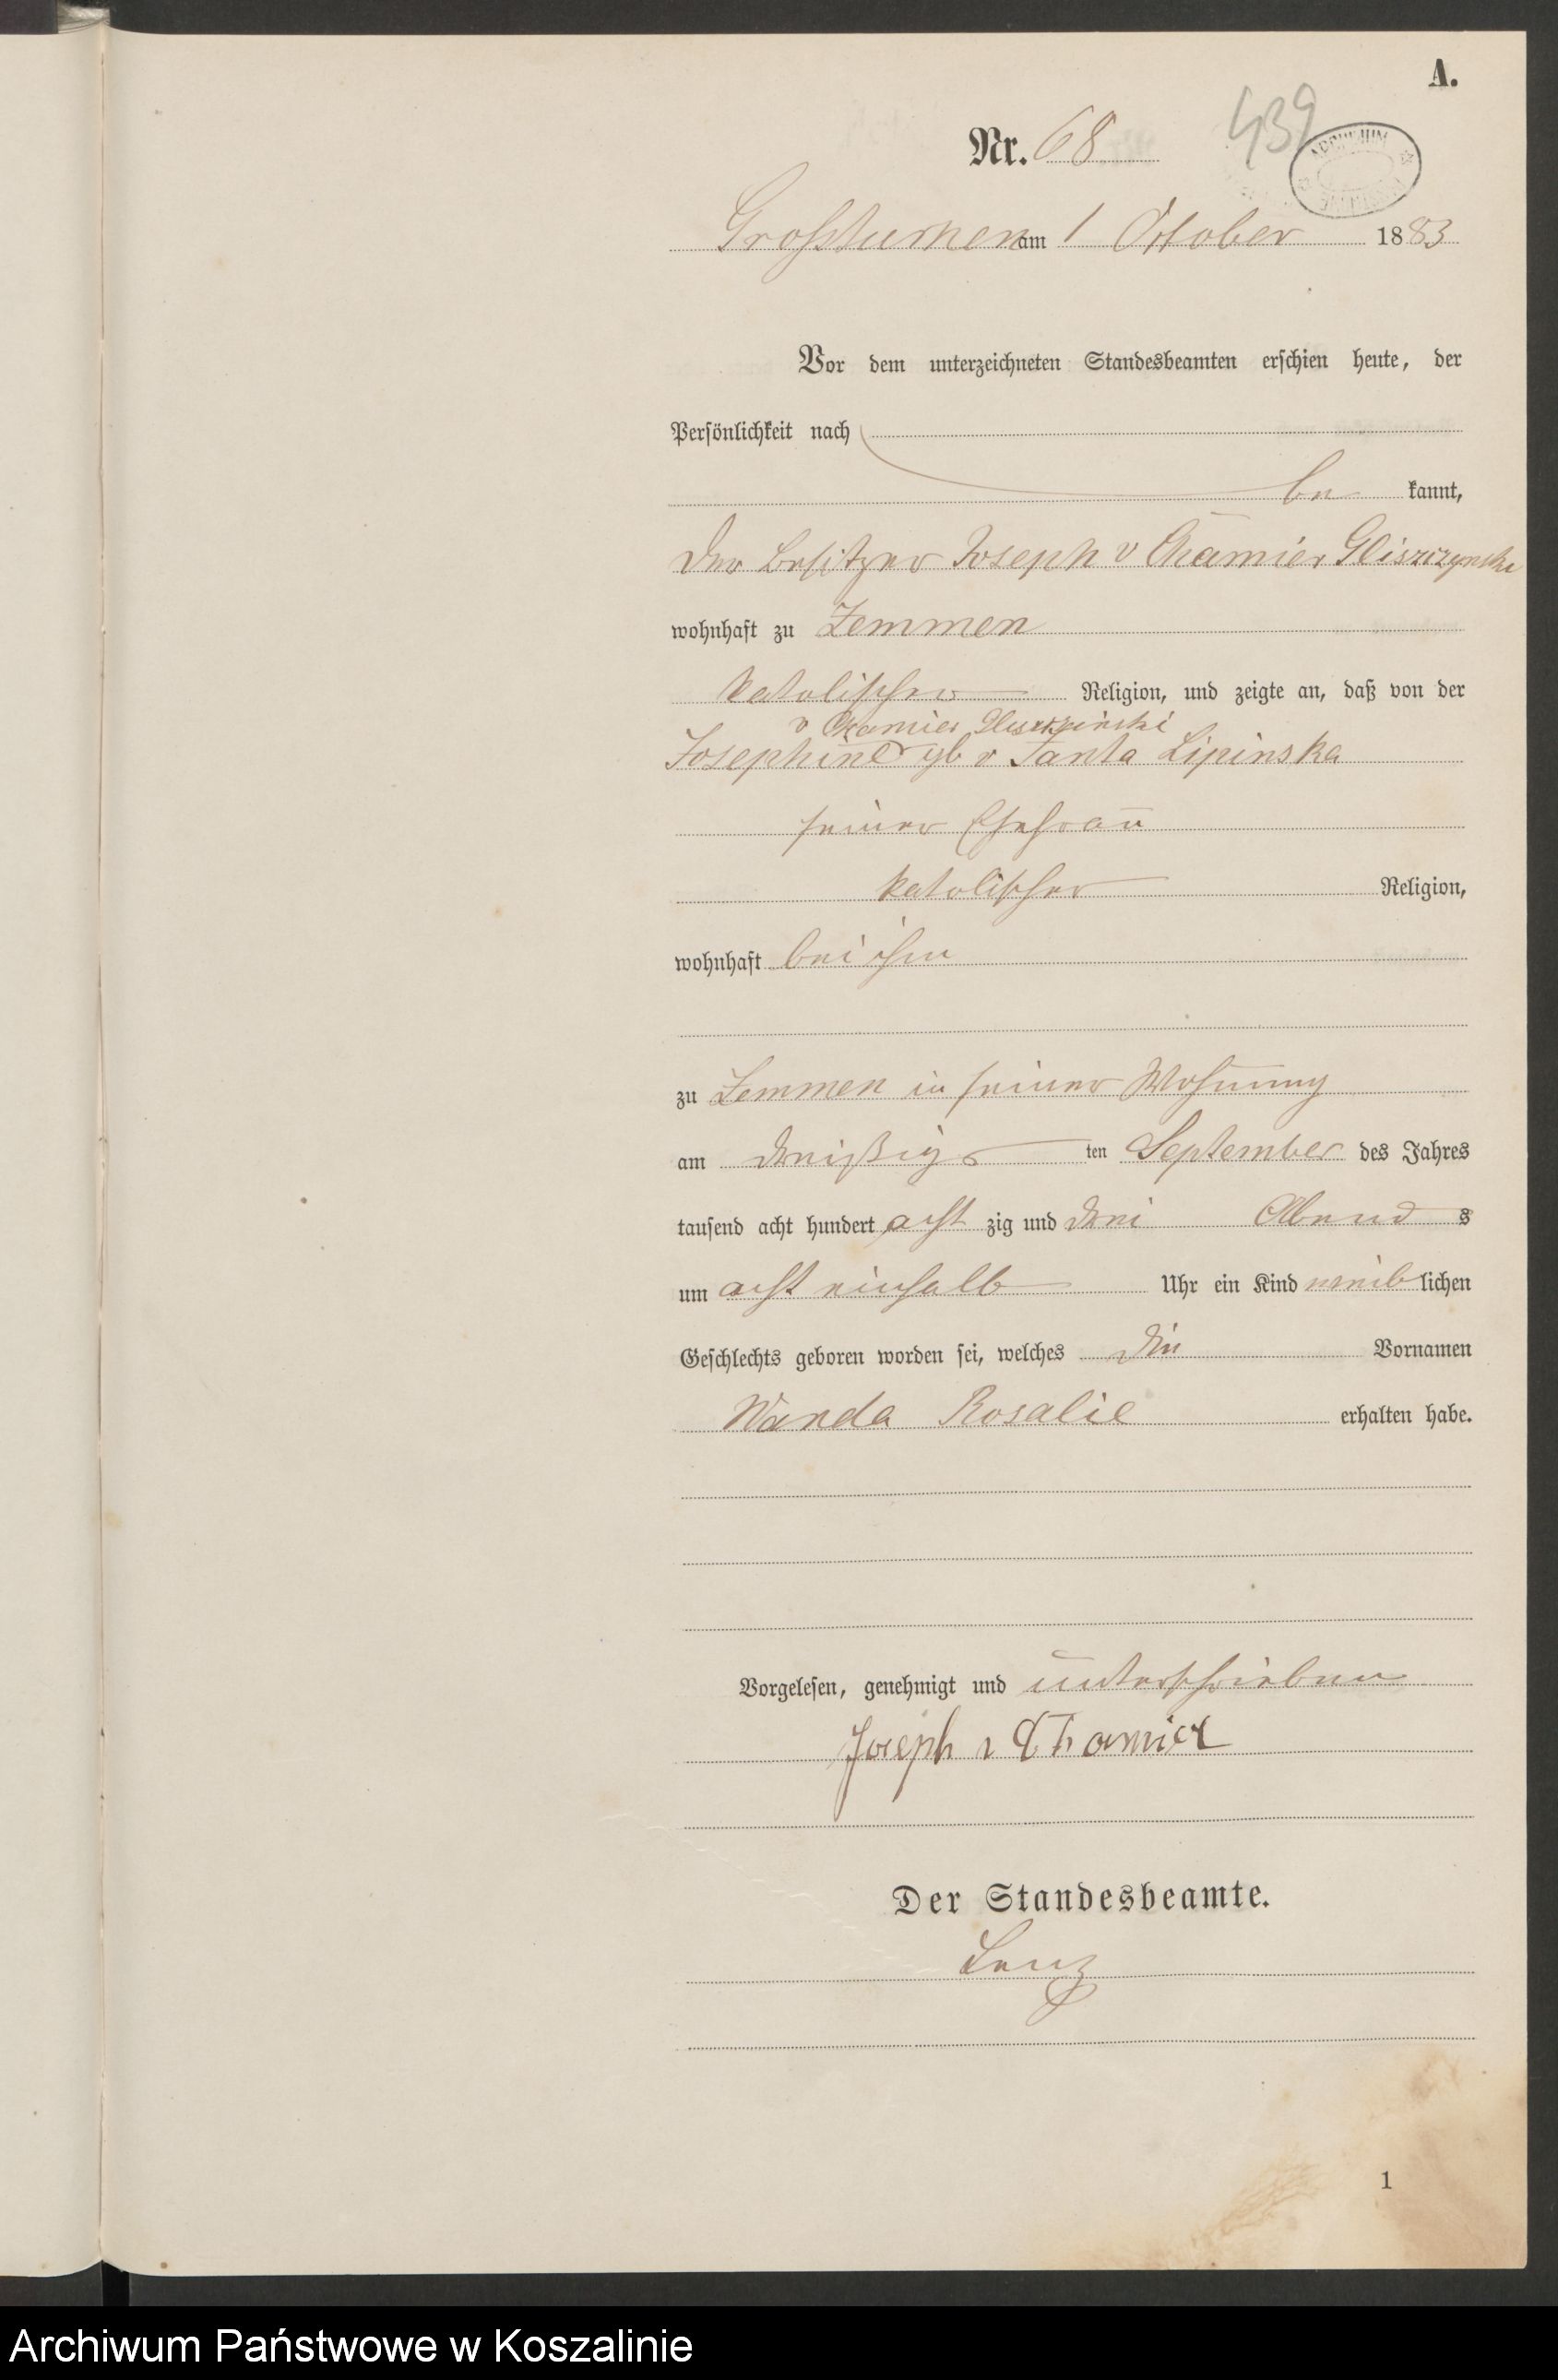 A.
439
Nr. 68
Großtuchen am 1 October 1883
Vor dem unterzeichneten Standesbeamten erschien heute, der
Persönlichkeit nach
be kannt,
der Besitzer Joseph v Chamier Gliszczynski
wohnhaft zu Zemmen
katolischer Religion, und zeigte an, daß von der
v Chamier Gliszczinski
Josephine gb v Janta Lipinska
seiner Ehefrau
katolischer Religion,
wohnhaft bei ihm
zu Zemmen in seiner Wohnung
am dreißigs ten September des Jahres
tausend acht hundert acht zig und drei Abend s
um acht einhalb Uhr ein Kind weib lichen
Geschlechts geboren worden sei, welches die Vornamen
Wanda Rosalie erhalten habe.
Vorgelesen, genehmigt und unterschrieben
Joseph v Chamier
Der Standesbeamte.
Lenz
1
Archiwum Państwowe w Koszalinie